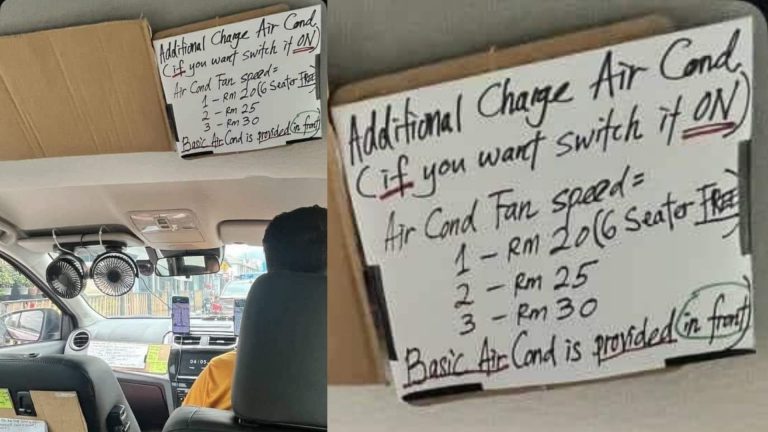 Additional Charge Air Cond
(if you want switch it ON)
Air Cond Fan speed =
1 - Rm 20 (6 Seater FREE)
2 - Rm 25
3 - Rm 30
Basic Air Cond is provided (in front)
Additional Charge Air Cond
(if you want switch it ON)
Air Cond Fan speed =
1 - Rm 20 (6 Seater FREE)
2 - Rm 25
3 - Rm 30
Basic Air Cond is provided (in front)